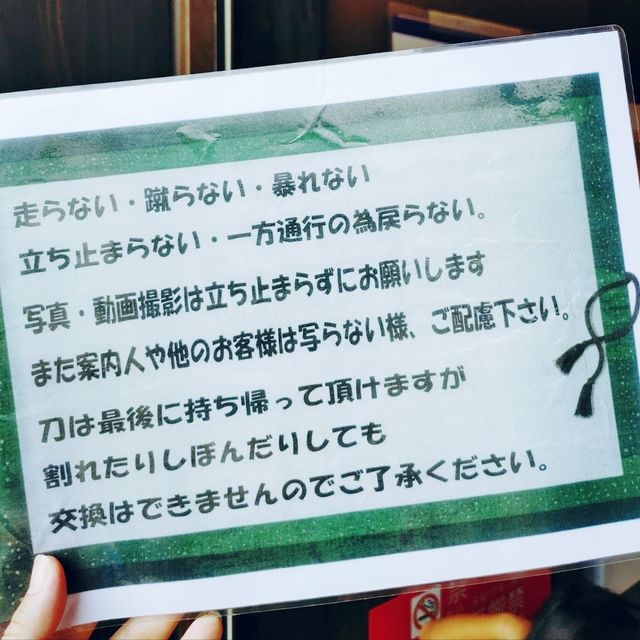 走らない・蹴らない・暴れない
立ち止まらない・一方通行の為戻らない。
写真・動画撮影は立ち止まらずにお願いします
また案内人や他のお客様は写らない様、ご配慮下さい。
刀は最後に持ち帰って頂けますが
割れたりしぼんだりしても
交換はできませんのでご了承ください。